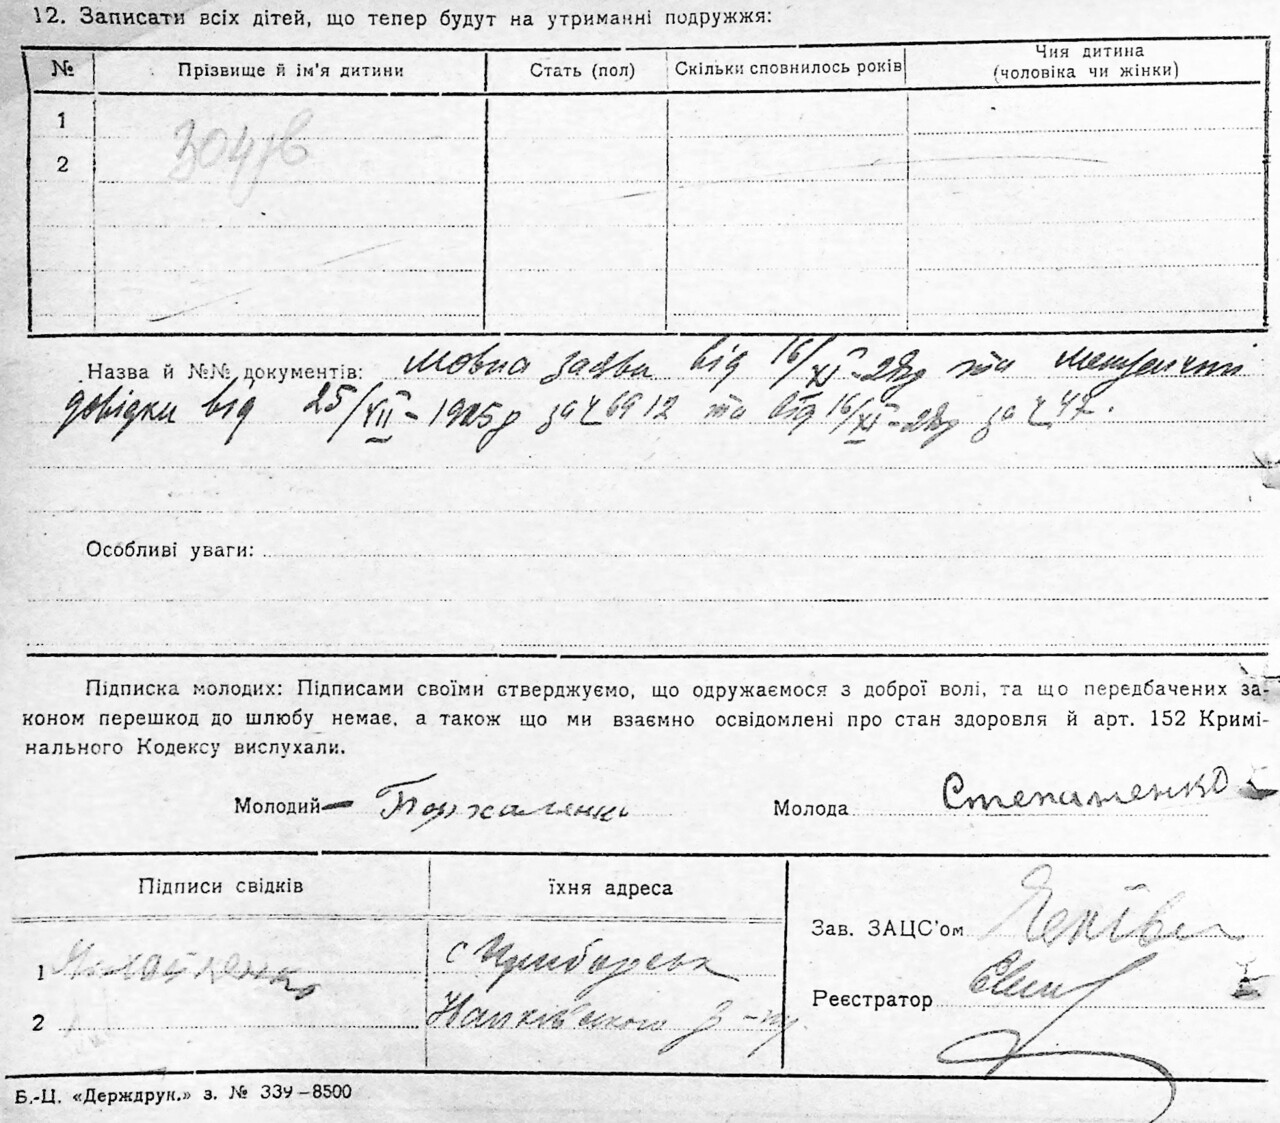 12. Записати всіх дітей, що тепер будут на утриманні подружжя:
№ Прізвище й ім'я дитини Стать (пол) Скільки сповнилось років Чия дитина (чоловіка чи жінки)
1
2
Назва й №№ документів: Мовна заява від 16/XI-28р та
довідки від 25/VII-1925р за ч 6912 та від 16/XI-28р за ч 47.
Особливі уваги:
Підписка молодих: Підписами своїми стверджуємо, що одружаємося з доброї волі, та що передбачених за-
коном перешкод до шлюбу немає, а також що ми взаємно освідомлені про стан здоровля й арт. 152 Кримі-
нального Кодексу вислухали.
Молодий Молода Степаненко
Підписи свідків їхня адреса
Зав. ЗАЦС'ом
1 с
Реєстратор
2
Б.-Ц. «Держдрук.» з. № 339-8500